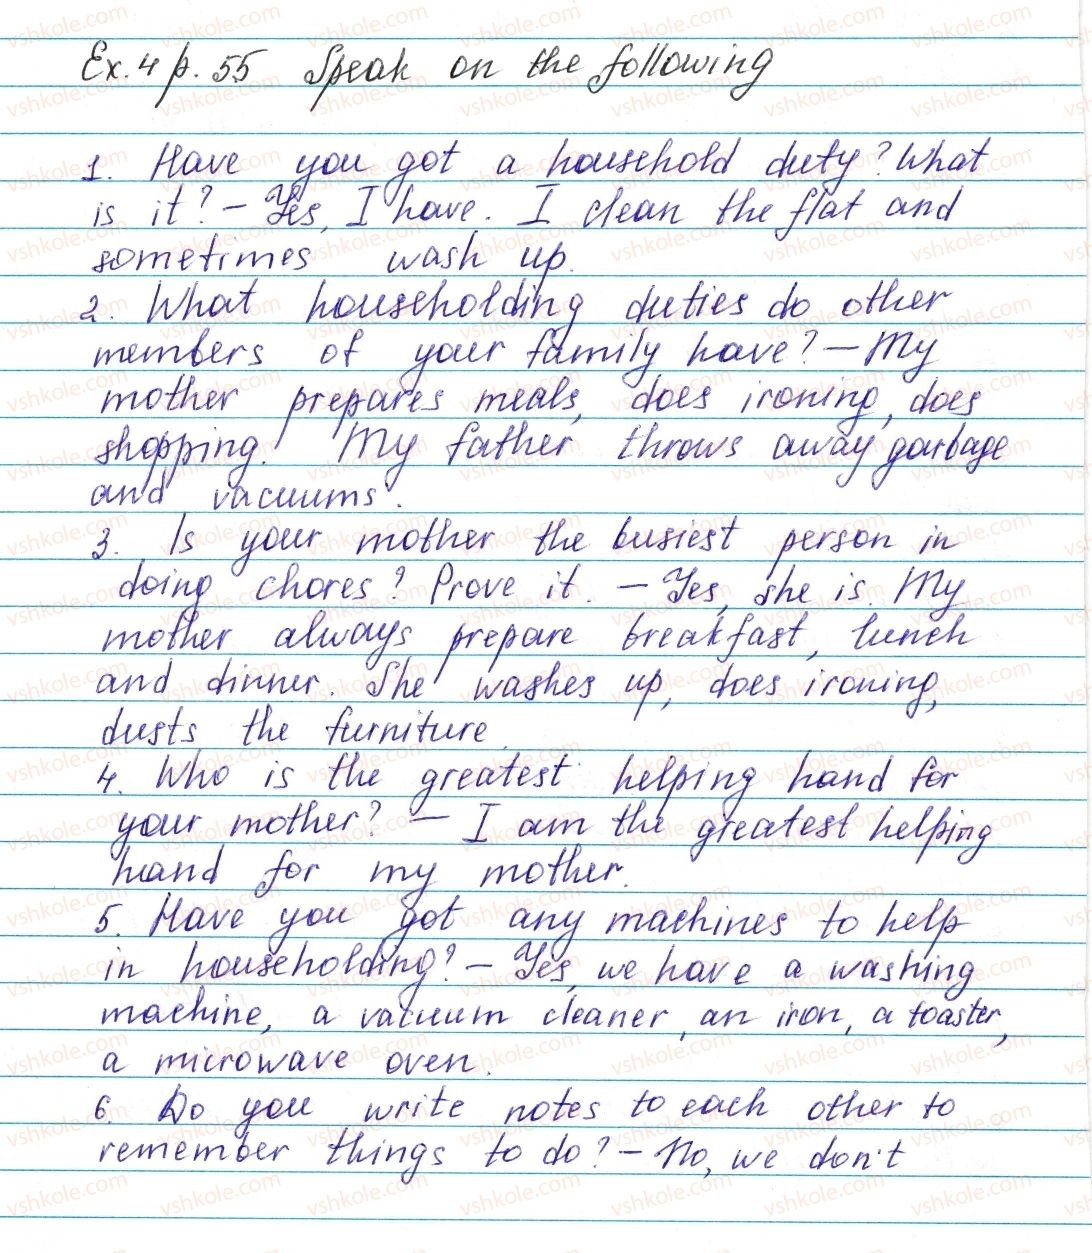 Ex. 4 p. 55 Speak on the following
1. Have you got a household duty? What
is it? – Yes, I have. I clean the flat and
sometimes wash up.
2. What householding duties do other
members of your family have? – My
mother prepares meals, does ironing, does
shopping. My father throws away garbage
and vacuums.
3. Is your mother the busiest person in
doing chores? Prove it. – Yes, she is. My
mother always prepare breakfast, lunch
and dinner. She washes up, does ironing,
dusts the furniture.
4. Who is the greatest helping hand for
your mother? – I am the greatest helping
hand for my mother.
5. Have you got any machines to help
in householding? – Yes, we have a washing
machine, a vacuum cleaner, an iron, a toaster,
a microwave oven.
6. Do you write notes to each other to
remember things to do? – No, we don't